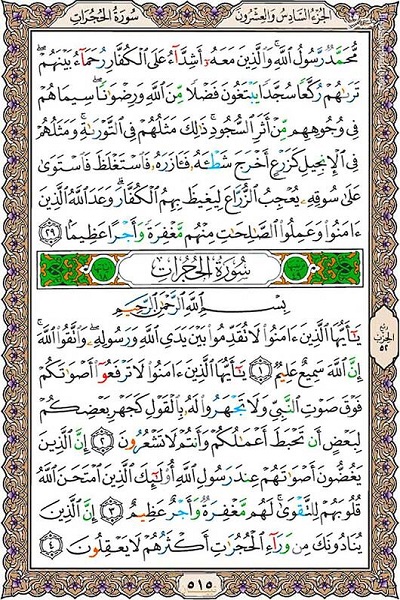 سُورَةُ الحُجُرَاتِ
الجُزءُ السَّادِسُ وَالعِشْرُونَ
مُّحَمَّدٌ رَّسُولُ ٱللَّهِ وَٱلَّذِينَ مَعَهُۥٓ أَشِدَّآءُ عَلَى ٱلْكُفَّارِ رُحَمَآءُ بَيْنَهُمْ
تَرَىٰهُمْ رُكَّعًا سُجَّدًا يَبْتَغُونَ فَضْلًا مِّنَ ٱللَّهِ وَرِضْوَٰنًا سِيمَاهُمْ
فِى وُجُوهِهِم مِّنْ أَثَرِ ٱلسُّجُودِ ذَٰلِكَ مَثَلُهُمْ فِى ٱلتَّوْرَىٰةِ وَمَثَلُهُمْ
فِى ٱلْإِنجِيلِ كَزَرْعٍ أَخْرَجَ شَطْـَٔهُۥ فَـَٔازَرَهُۥ فَٱسْتَغْلَظَ فَٱسْتَوَىٰ
عَلَىٰ سُوقِهِۦ يُعْجِبُ ٱلزُّرَّاعَ لِيَغِيظَ بِهِمُ ٱلْكُفَّارَ وَعَدَ ٱللَّهُ ٱلَّذِينَ
ءَامَنُوا۟ وَعَمِلُوا۟ ٱلصَّٰلِحَٰتِ مِنْهُم مَّغْفِرَةً وَأَجْرًا عَظِيمًۢا ٢٩
سُورَةُ الحُجُرَاتِ
بِسْمِ ٱللَّهِ ٱلرَّحْمَٰنِ ٱلرَّحِيمِ
يَٰٓأَيُّهَا ٱلَّذِينَ ءَامَنُوا۟ لَا تُقَدِّمُوا۟ بَيْنَ يَدَىِ ٱللَّهِ وَرَسُولِهِۦ وَٱتَّقُوا۟ ٱللَّهَ
إِنَّ ٱللَّهَ سَمِيعٌ عَلِيمٌ ١ يَٰٓأَيُّهَا ٱلَّذِينَ ءَامَنُوا۟ لَا تَرْفَعُوٓا۟ أَصْوَٰتَكُمْ
فَوْقَ صَوْتِ ٱلنَّبِىِّ وَلَا تَجْهَرُوا۟ لَهُۥ بِٱلْقَوْلِ كَجَهْرِ بَعْضِكُمْ
لِبَعْضٍ أَن تَحْبَطَ أَعْمَٰلُكُمْ وَأَنتُمْ لَا تَشْعُرُونَ ٢ إِنَّ ٱلَّذِينَ
يَغُضُّونَ أَصْوَٰتَهُمْ عِندَ رَسُولِ ٱللَّهِ أُو۟لَٰٓئِكَ ٱلَّذِينَ ٱمْتَحَنَ ٱللَّهُ
قُلُوبَهُمْ لِلتَّقْوَىٰ لَهُم مَّغْفِرَةٌ وَأَجْرٌ عَظِيمٌ ٣ إِنَّ ٱلَّذِينَ
يُنَادُونَكَ مِن وَرَآءِ ٱلْحُجُرَٰتِ أَكْثَرُهُمْ لَا يَعْقِلُونَ ٤
ربع
الحزب
٥٢
٥١٥